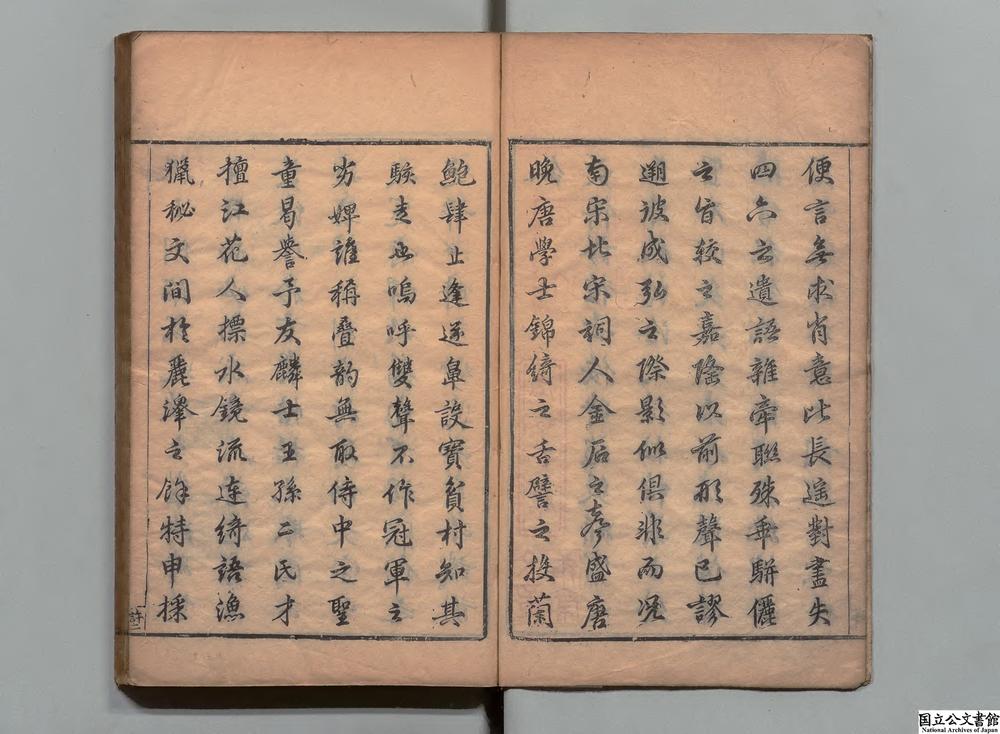 便言無求肖意比長遥對盡失
四六之遺語雜牽聯殊乖駢儷
之旨較之嘉隆以前形聲已謬
遡彼成弘之際影似俱非而况
南宋北宋詞人金石之奏盛唐
晚唐學士錦綺之舌譬之投蘭
鮑肆止逢逐臭設寶貧村知其
駭走也嗚呼雙聲不作冠軍之
劣婢誰稱疊韵無取侍中之聖
童曷譽予友麟士王孫二氏才
擅江花人摽水鏡流連綺語漁
獵秘文間於麗澤之餘特申採
国立公文書館
National Archives of Japan